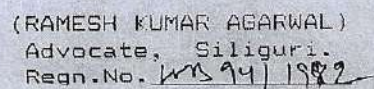 (RAMESH KUMAR AGARWAL)
Advocate, Siliguri.
Regn.No. WB 94/1982